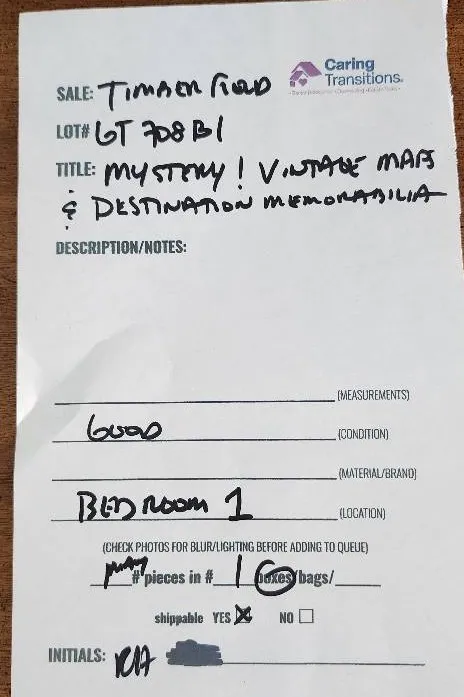 Caring
Transitions®
SALE: TIMBER FIELD
LOT# LOT 708 B1
TITLE: MYSTERY! VINTAGE MAPS
& DESTINATION MEMORABILIA
DESCRIPTION/NOTES:
(MEASUREMENTS)
GOOD (CONDITION)
(MATERIAL/BRAND)
BEDROOM 1 (LOCATION)
(CHECK PHOTOS FOR BLUR/LIGHTING BEFORE ADDING TO QUEUE)
MANY # pieces in # 1 boxes/bags/
shippable YES NO
INITIALS: